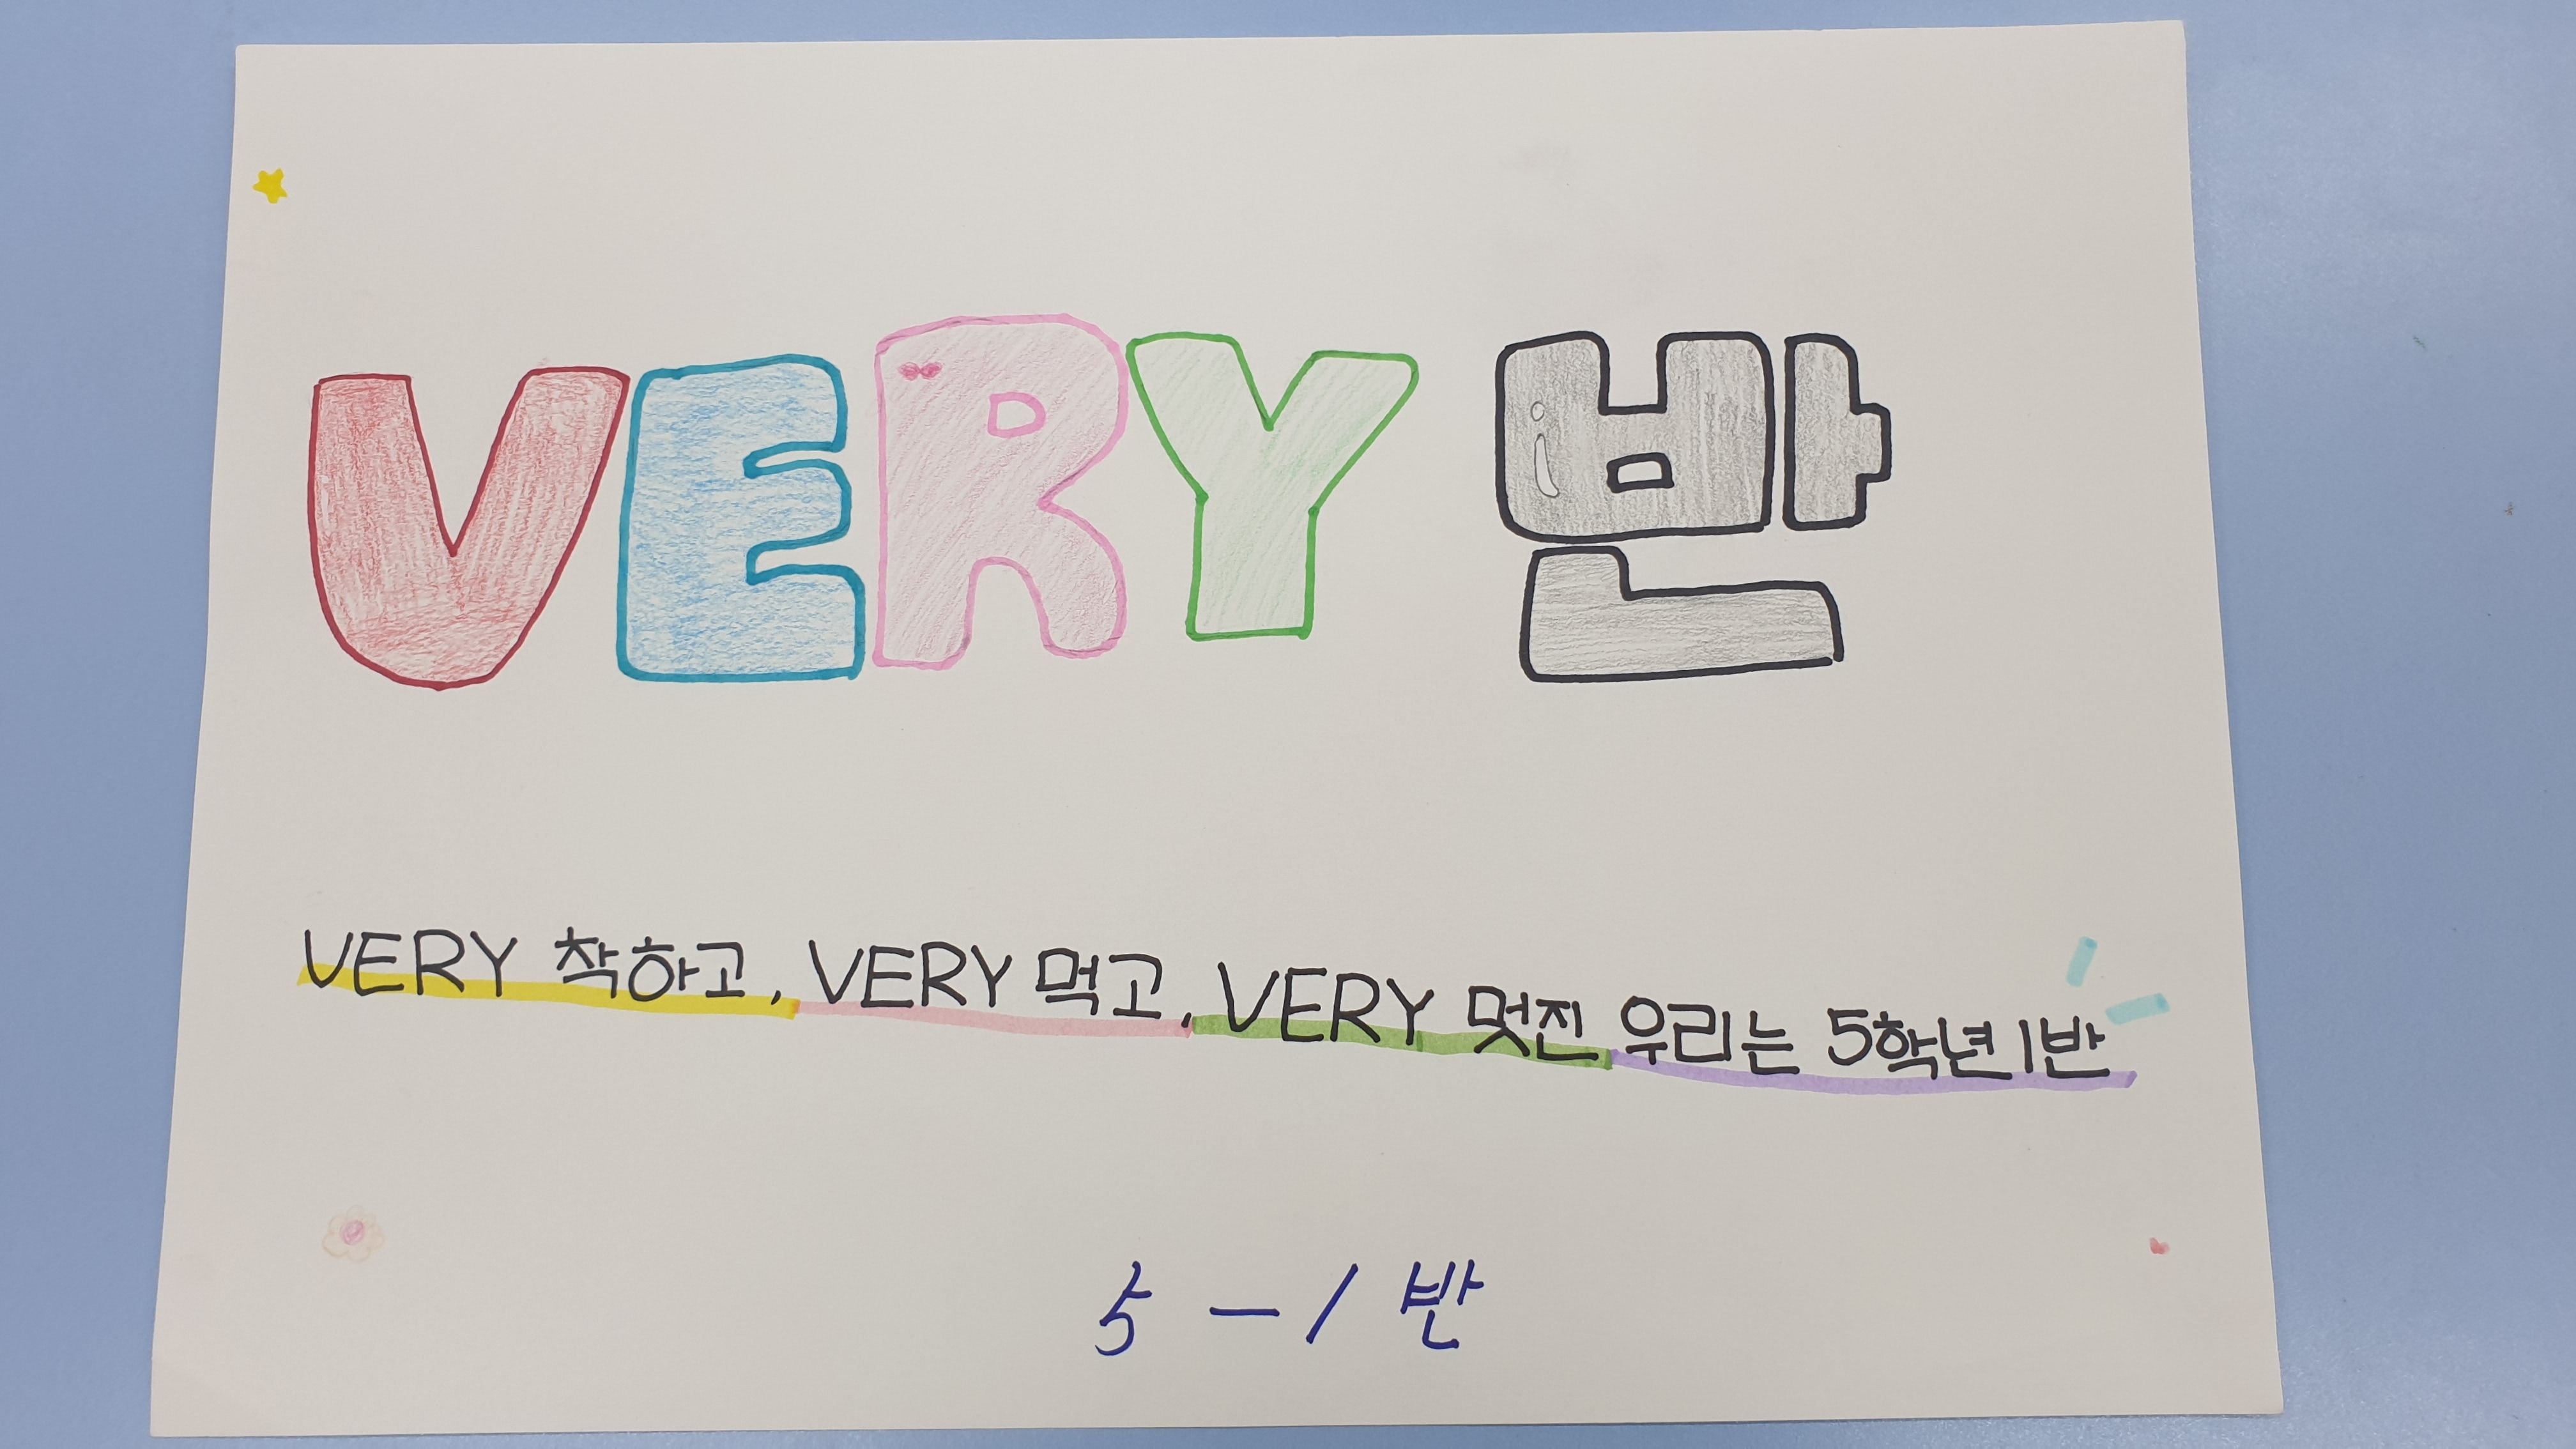 VERY 반
VERY 착하고, VERY 먹고, VERY 멋진 우리는 5학년 1반
5 - 1 반